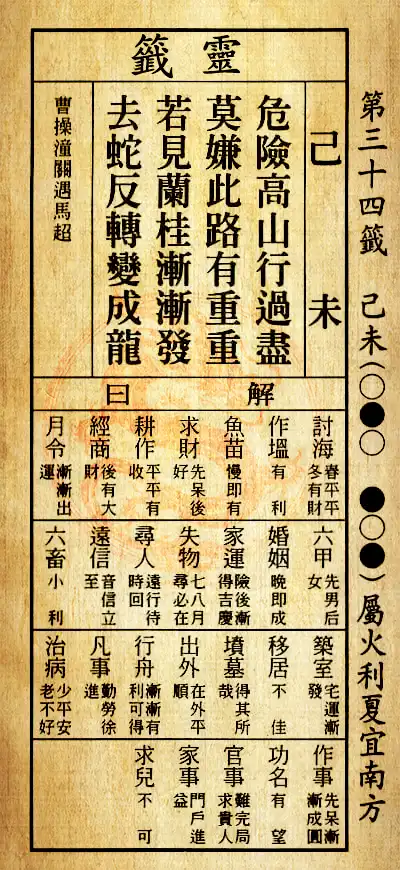 第三十四籤 己未(○●○ ●○●)屬火利夏宜南方
靈籤
己未
危險高山行過盡
莫嫌此路有重重
若見蘭桂漸漸發
去蛇反轉變成龍
曹操潼關遇馬超
解曰
討海 春平平冬有財
作塭 有利
魚苗 慢即有
求財 先呆後好
耕作 平平有收
經商 後有大財
月令 漸漸出運
六甲 先男后女
婚姻 晚即成
家運 險後漸得吉慶
失物 七八月尋必在
尋人 遠行待時回
遠信 音信立至
六畜 小利
築室 宅運漸發
移居 不佳
墳墓 得其所哉
出外 在外平順
行舟 漸漸有利可得
凡事 勤勞徐進
治病 少平安老不好
作事 先呆漸漸成圓
功名 有望
官事 難完局求貴人
家事 門戶進益
求兒 不可